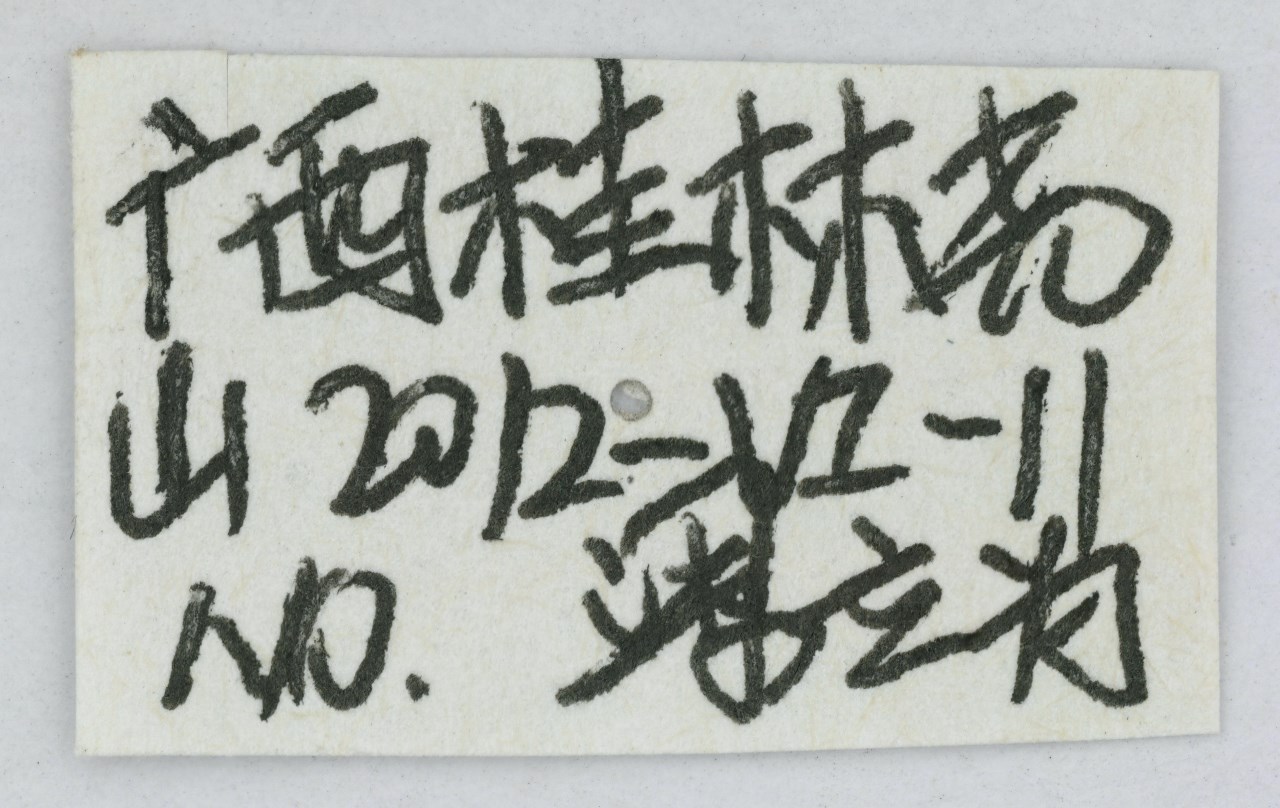 广西桂林尧
山 2012-VI-11
NO. 立为